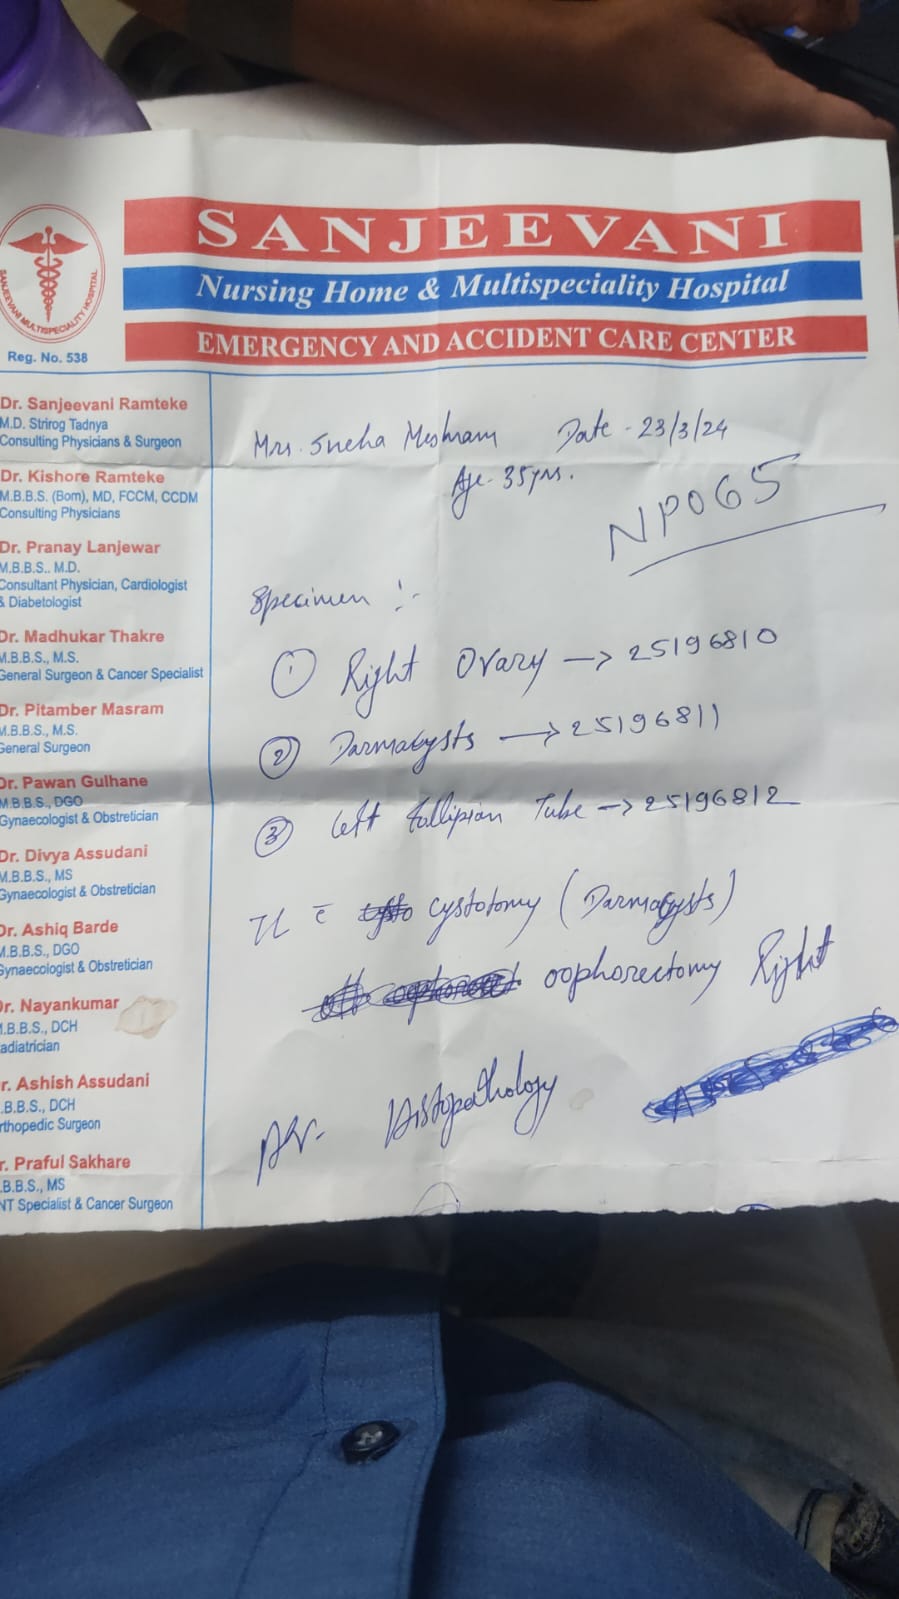 SANJEEVANI
Nursing Home & Multispeciality Hospital
EMERGENCY AND ACCIDENT CARE CENTER
SANJEEVANI MULTISPECIALITY HOSPITAL
Reg. No. 538
Dr. Sanjeevani Ramteke
M.D. Strirog Tadnya
Consulting Physicians & Surgeon
Dr. Kishore Ramteke
M.B.B.S. (Bom), MD, FCCM, CCDM
Consulting Physicians
Dr. Pranay Lanjewar
M.B.B.S.. M.D.
Consultant Physician, Cardiologist
& Diabetologist
Dr. Madhukar Thakre
M.B.B.S., M.S.
General Surgeon & Cancer Specialist
Dr. Pitamber Masram
M.B.B.S., M.S.
General Surgeon
Dr. Pawan Gulhane
M.B.B.S., DGO
Gynaecologist & Obstretician
Dr. Divya Assudani
M.B.B.S., MS
Gynaecologist & Obstretician
Dr. Ashiq Barde
M.B.B.S., DGO
Gynaecologist & Obstretician
Dr. Nayankumar
M.B.B.S., DCH
adiatrician
r. Ashish Assudani
.B.B.S., DCH
rthopedic Surgeon
r. Praful Sakhare
.B.B.S., MS
NT Specialist & Cancer Surgeon
Mrs. Sneha Meshram Date - 23/3/24
Age - 35yrs.
NP065
Specimen :-
① Right Ovary -> 25196810
② Darmacysts -> 25196811
③ left fallipian Tube -> 25196812
cystotomy (Darmacysts)
oophorectomy Right
Adv. Histopathology